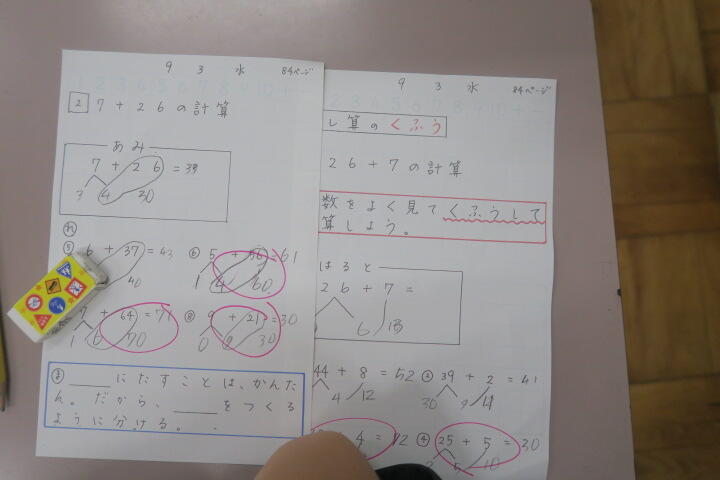 9 3 水 84ページ
2 7+26の計算
あみ
7 + 26 = 33
3 4 30
れ
⑤ 6 + 37 = 43
40
⑥ 5 + 56 = 61
1 4 60
7 + 64 = 71
1 6 70
⑧ 9 + 21 = 30
0 30
ま ＿＿にたすことは、かんた
ん。だから、＿＿をつくる
ように分ける。
9 3 水 84ページ
し算のくふう
26+7の計算
数をよく見てくふうして
算しよう。
はると
26 + 7 =
6 13
44 + 8 = 52
4 12
② 39 + 2 = 41
30 9 11
4 = 12
④ 25 + 5 = 30
5 10